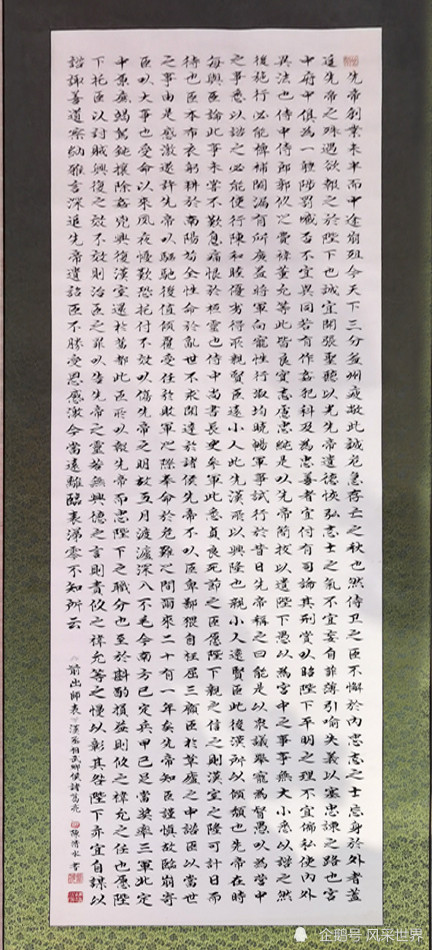 先帝創業未半而中途崩殂今天下三分益州疲敝此誠危急存亡之秋也然侍衛之臣不懈於內忠志之士忘身於外者蓋
追先帝之殊遇欲報之於陛下也誠宜開張聖聽以光先帝遺德恢弘志士之氣不宜妄自菲薄引喻失義以塞忠諫之路也宮
中府中俱為一體陟罰臧否不宜異同若有作姦犯科及為忠善者宜付有司論其刑賞以昭陛下平明之理不宜偏私使內外
異法也侍中侍郎郭攸之費禕董允等此皆良實志慮忠純是以先帝簡拔以遺陛下愚以為宮中之事事無大小悉以諮之然
後施行必能裨補闕漏有所廣益將軍向寵性行淑均曉暢軍事試行於昔日先帝稱之曰能是以衆議舉寵為督愚以為營中
之事悉以諮之必能使行陳和睦優劣得所親賢臣遠小人此先漢所以興隆也親小人遠賢臣此後漢所以傾頹也先帝在時
每與臣論此事未嘗不歎息痛恨於桓靈也侍中尚書長史參軍此悉貞良死節之臣願陛下親之信之則漢室之隆可計日而
待也臣本布衣躬耕於南陽苟全性命於亂世不求聞達於諸侯先帝不以臣卑鄙猥自枉屈三顧臣於草廬之中諮臣以當世
之事由是感激遂許先帝以驅馳後值傾覆受任於敗軍之際奉命於危難之間爾來二十有一年矣先帝知臣謹慎故臨崩寄
臣以大事也受命以來夙夜憂歎恐托付不效以傷先帝之明故五月渡瀘深入不毛今南方已定兵甲已足當獎率三軍北定
中原庶竭駑鈍攘除姦凶興復漢室還於舊都此臣所以報先帝而忠陛下之職分也至於斟酌損益則攸之禕允之任也願陛
下托臣以討賊興復之效不效則治臣之罪以告先帝之靈若無興德之言則責攸之禕允等之慢以彰其咎陛下亦宜自謀以
諮諏善道察納雅言深追先帝遺詔臣不勝受恩感激今當遠離臨表涕零不知所云
前出師表 漢丞相武鄉侯諸葛亮 陳清水書
企鹅号 风采世界